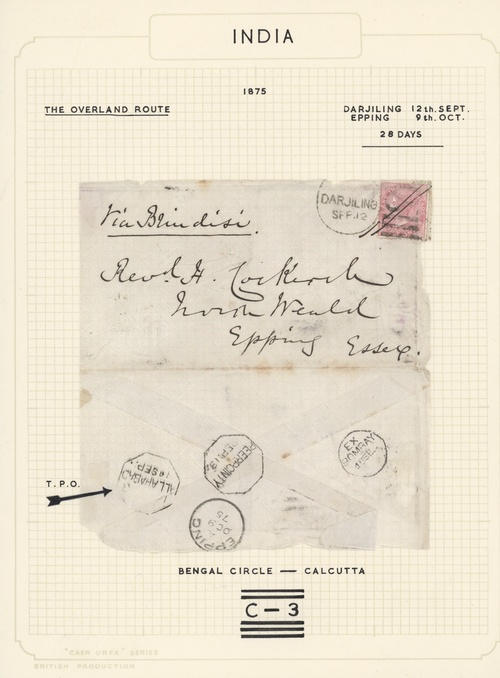 INDIA
1875
THE OVERLAND ROUTE
DARJILING 12th. SEPT.
EPPING 9th. OCT.
28 DAYS
DARJILING
SEP. 12
Via Brindisi.
Revd. H. Cockerell
North Weald
Epping Essex.
T.P.O.
ALLAHABAD
SEP.
PEERPOINTY
SEP. 13
EX
BOMBAY
EPPING
OC 9
75
BENGAL CIRCLE — CALCUTTA
C-3
"CAER URFA" SERIES
BRITISH PRODUCTION